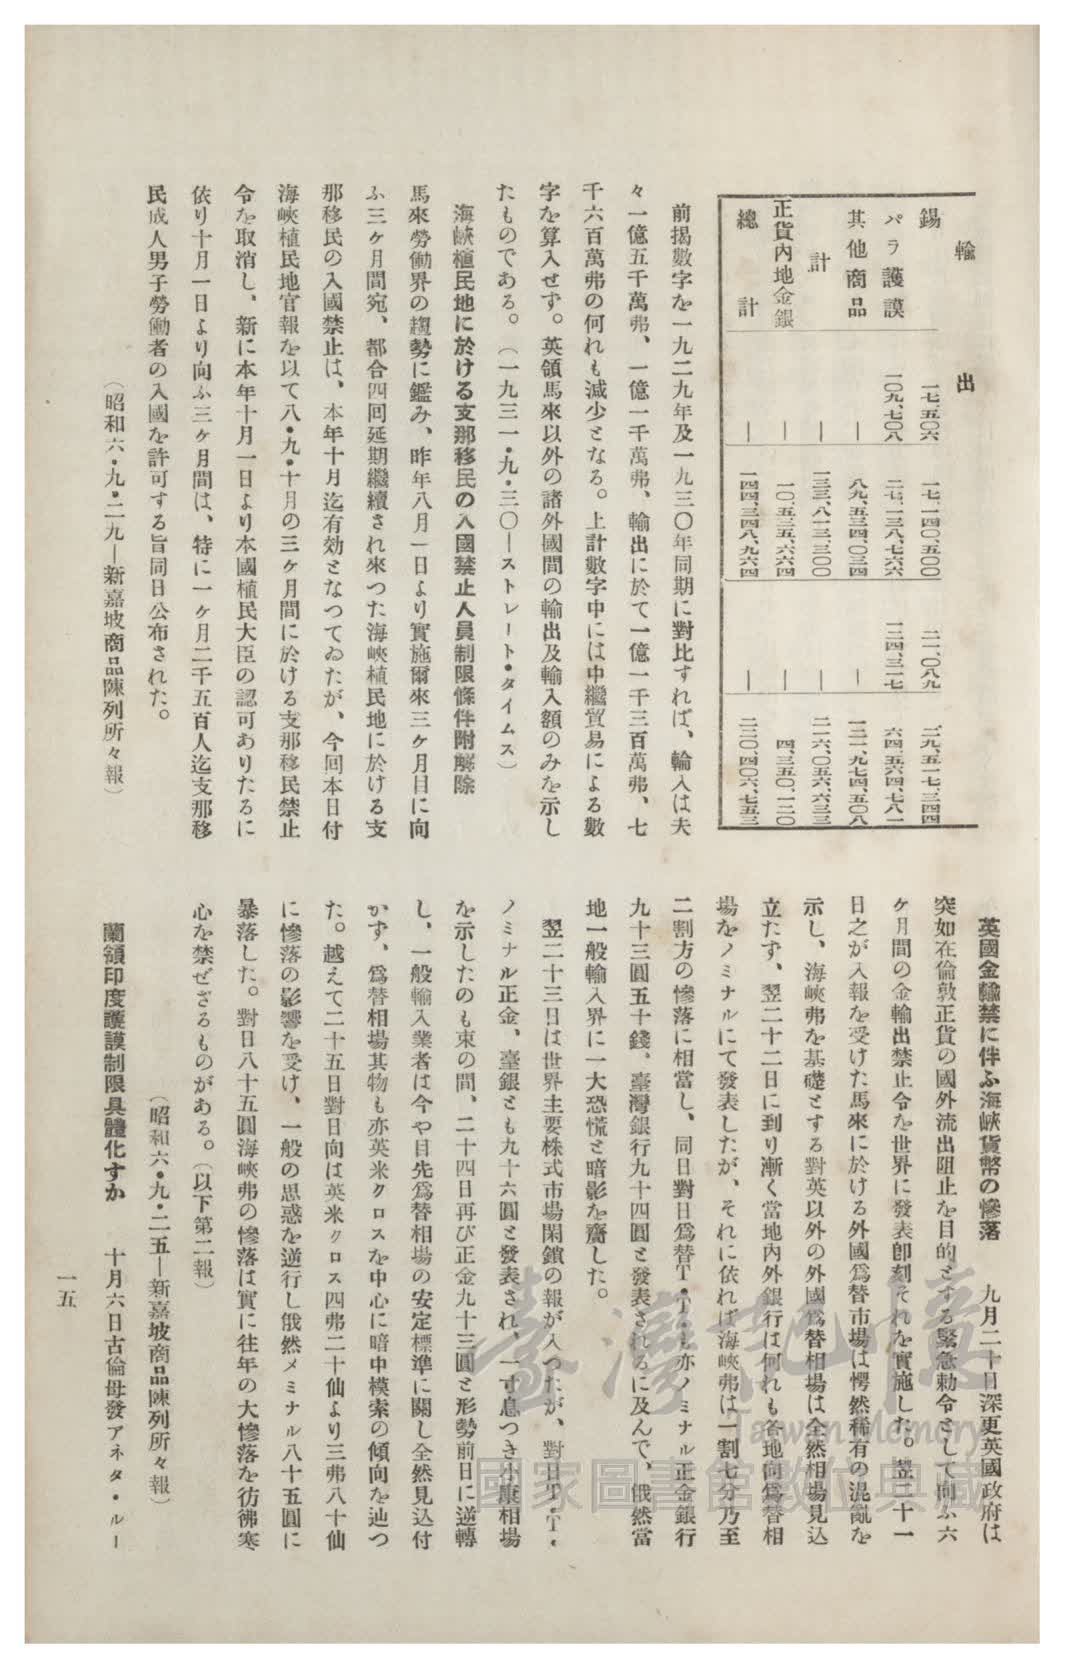 輸出
錫 一七、五〇六 一七、一四〇、五〇〇 二一、〇八九 二九、五一七、三四四
パラ護謨 一〇九、七〇八 二七、一三八、七六六 一二四、三一七 六四、五六四、七八一
其他商品 ― 八九、五三四、〇三四 ― 一二一、九七四、五〇八
計 ― 一三三、八一三、三〇〇 ― 二一六、〇五六、六三三
正貨內地金銀 ― 一〇、五三五、六六四 ― 四、三五〇、一二〇
總計 ― 一四四、三四八、九六四 ― 二二〇、四〇六、七五三
前揭數字を一九二九年及一九三〇年同期に對比すれば、輸入は夫
々一億五千萬弗、一億一千萬弗、輸出に於て一億一千三百萬弗、七
千六百萬弗の何れも減少となる。上計數字中には中繼貿易による數
字を算入せず。英領馬來以外の諸外國間の輸出及輸入額のみを示し
たものである。（一九三一・九・三〇―ストレート・タイムス）
海峽植民地に於ける支那移民の入國禁止人員制限條件附解除
馬來勞働界の趨勢に鑑み、昨年八月一日より實施爾來三ヶ月目に向
ふ三ヶ月間宛、都合四回延期繼續され來つた海峽植民地に於ける支
那移民の入國禁止は、本年十月迄有効となつてゐたが、今回本日付
海峽植民地官報を以て八・九・十月の三ヶ月間に於ける支那移民禁止
令を取消し、新に本年十月一日より本國植民大臣の認可ありたるに
依り十月一日より向ふ三ヶ月間は、特に一ヶ月二千五百人迄支那移
民成人男子勞働者の入國を許可する旨同日公布された。
（昭和六・九・二九―新嘉坡商品陳列所々報）
英國金輸禁に伴ふ海峽貨幣の慘落　九月二十日深更英國政府は
突如在倫敦正貨の國外流出阻止を目的とする緊急勅令として向ふ六
ケ月間の金輸出禁止令を世界に發表卽刻それを實施した。翌二十一
日之が入報を受けた馬來に於ける外國爲替市場は愕然稀有の混亂を
示し、海峽弗を基礎とする對英以外の外國爲替相場は全然相場見込
立たず、翌二十二日に到り漸く當地內外銀行は何れも各地向爲替相
場をノミナルにて發表したが、それに依れば海峽弗は一割七分乃至
二割方の慘落に相當し、同日對日爲替T・Tも亦ノミナル正金銀行
九十三圓五十錢、臺灣銀行九十四圓と發表されるに及んで、俄然當
地一般輸入界に一大恐慌と暗影を齎した。
翌二十三日は世界主要株式市場閉鎖の報が入つたが、對日T・T・
ノミナル正金、臺銀とも九十六圓と發表され、一寸息つき小康相場
を示したのも束の間、二十四日再び正金九十三圓と形勢前日に逆轉
し、一般輸入業者は今や目先爲替相場の安定標準に關し全然見込付
かず、爲替相場其物も亦英米クロスを中心に暗中模索の傾向を辿つ
た。越えて二十五日對日向は英米クロス四弗二十仙より三弗八十仙
に慘落の影響を受け、一般の思惑を逆行し俄然メミナル八十五圓に
暴落した。對日八十五圓海峽弗の慘落は實に往年の大慘落を彷彿寒
心を禁ぜざるものがある。（以下第二報）
（昭和六・九・二五―新嘉坡商品陳列所々報）
蘭領印度護謨制限具體化すか　十月六日古倫母發アネタ・ルー
一五
臺灣記憶
Taiwan Memory
國家圖書館數位典藏